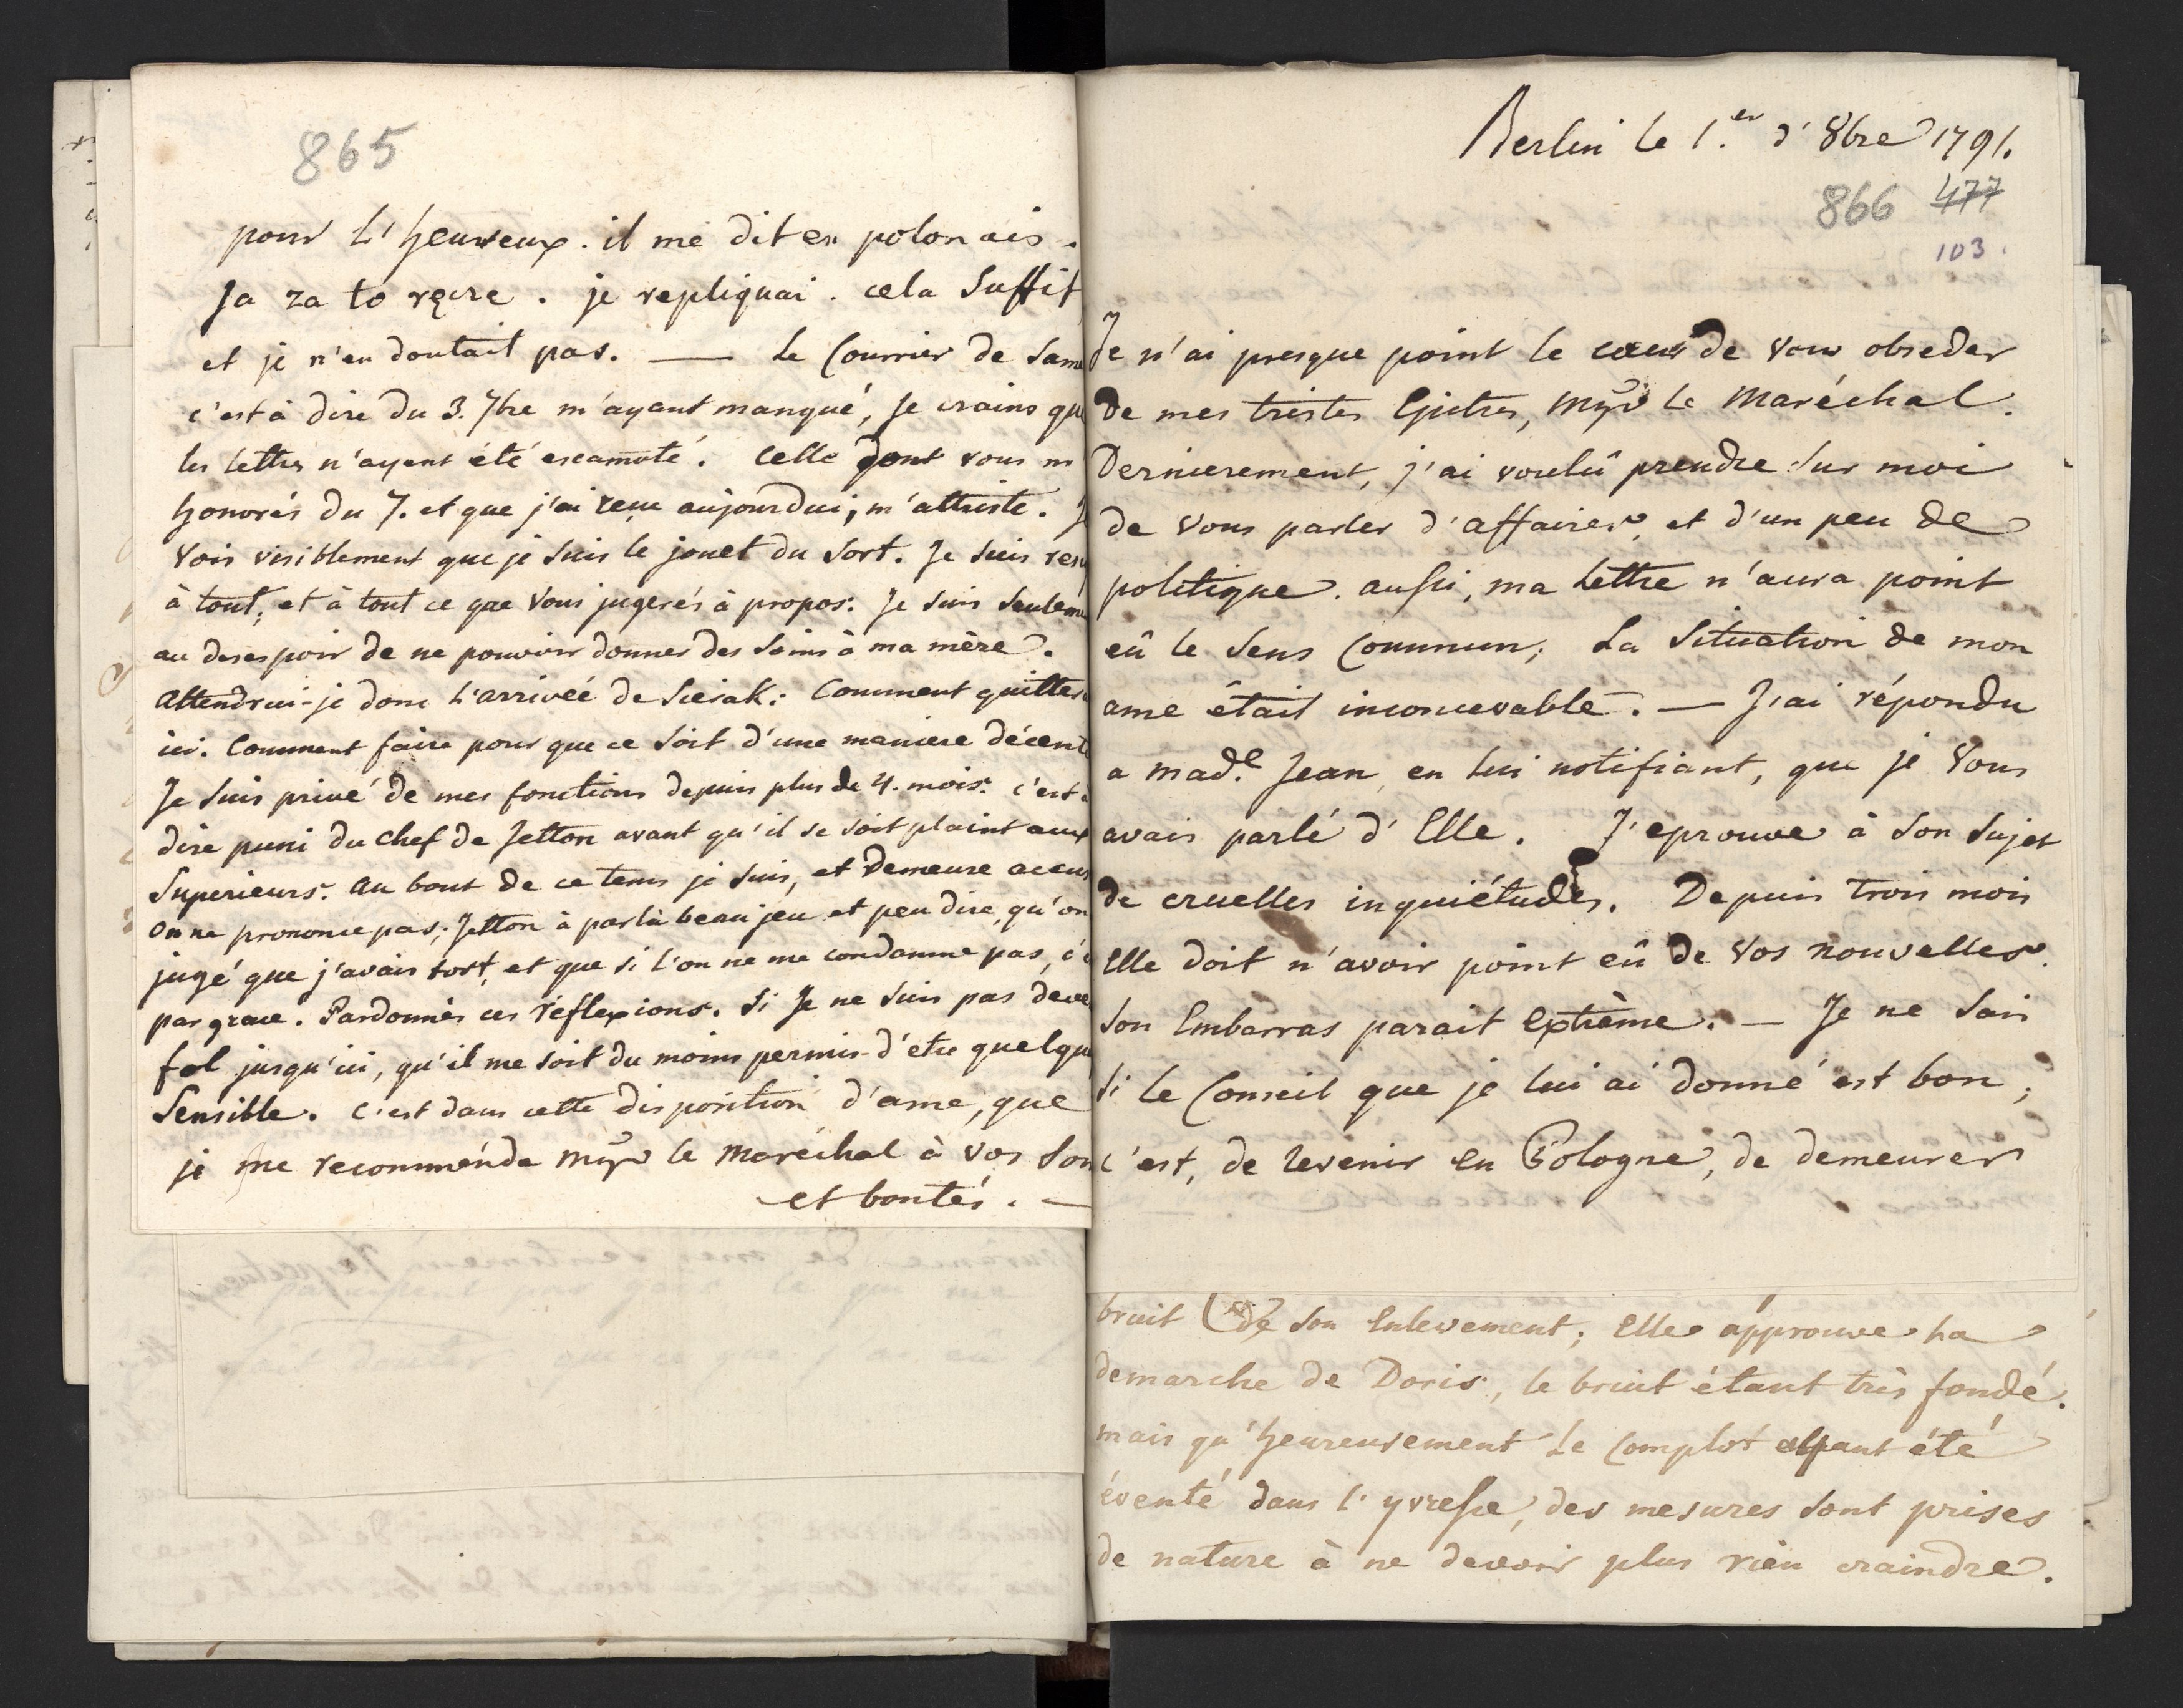 865
pour l'heureux. il me dit en polonais.
Ja za to ręcze. je repliquai. cela Suffit
et je n'en doutait pas. — Le Courrier de Same
c'est à dire du 3. 7bre m'ayant manqué, Je crains que
les lettres n'ayent été escamoté. Celle dont vous m
honorés du 7. et que j'ai reçue aujourdui, m'attriste. J
Vois visiblement que je suis le jouet du Sort. Je suis resi
à tout, et à tout ce que Vous jugerés à propos: Je suis Seuleme
au desespoir de ne pouvoir donner des Soins à ma mère.
Attendrai-je donc l'arrivée de : Comment quitter
ici. Comment faire pour que ce soit d'une maniere décente
Je suis privé de mes fonctions depuis plus de 4. mois: c'est a
dire puni du chef de Jetton avant qu'il se soit plaint aux
Superieurs. Au bout de ce tems je suis, et Demeure accus
On ne prononce pas; Jetton à par là beau jeu et peu dire, qu'on
jugé que j'avais tort, et que si l'on ne me condamne pas, c'e
par grace. Pardonnés ces réflexions. Si Je ne suis pas deve
fol jusqu'ici, qu'il me soit du moins permis d'etre quelque
Sensible. C'est dans cette disposition d'ame, que
je me recommènde Mgr le Maréchal à vos Son
et bontés. —
Berlin le 1.er d'8bre 1791.
866 477
103.
Je n'ai presque point le cœur de vous obseder
de mes tristes Epitres, Mgr le Maréchal.
Dernierement, j'ai voulû prendre sur moi
de Vous parler d'affaires, et d'un peu de
politique. aussi, ma Lettre n'aura point
eû le Sens Commun; La Situation de mon
ame était inconcevable. — J'ai répondu
a Made. Jean, en lui notifiant, que je Vous
avais parlé d'Elle. J'eprouve à Son Sujet
de cruelles inquiétudes. Depuis trois mois
Elle doit n'avoir point eû de Vos nouvelles.
Son Embarras parait Extrème. — Je ne Sais
Si le Conseil que je lui ai donné est bon;
c'est, de revenir en Pologne, de demeurer
bruit de son Enlevement; Elle approuve la
demarche de Doris, le bruit étant très fondé.
mais qu'heureusement Le Complot ayant été
éventé dans l'yvresse, des mesures sont prises
de nature à ne devoir plus rien craindre.